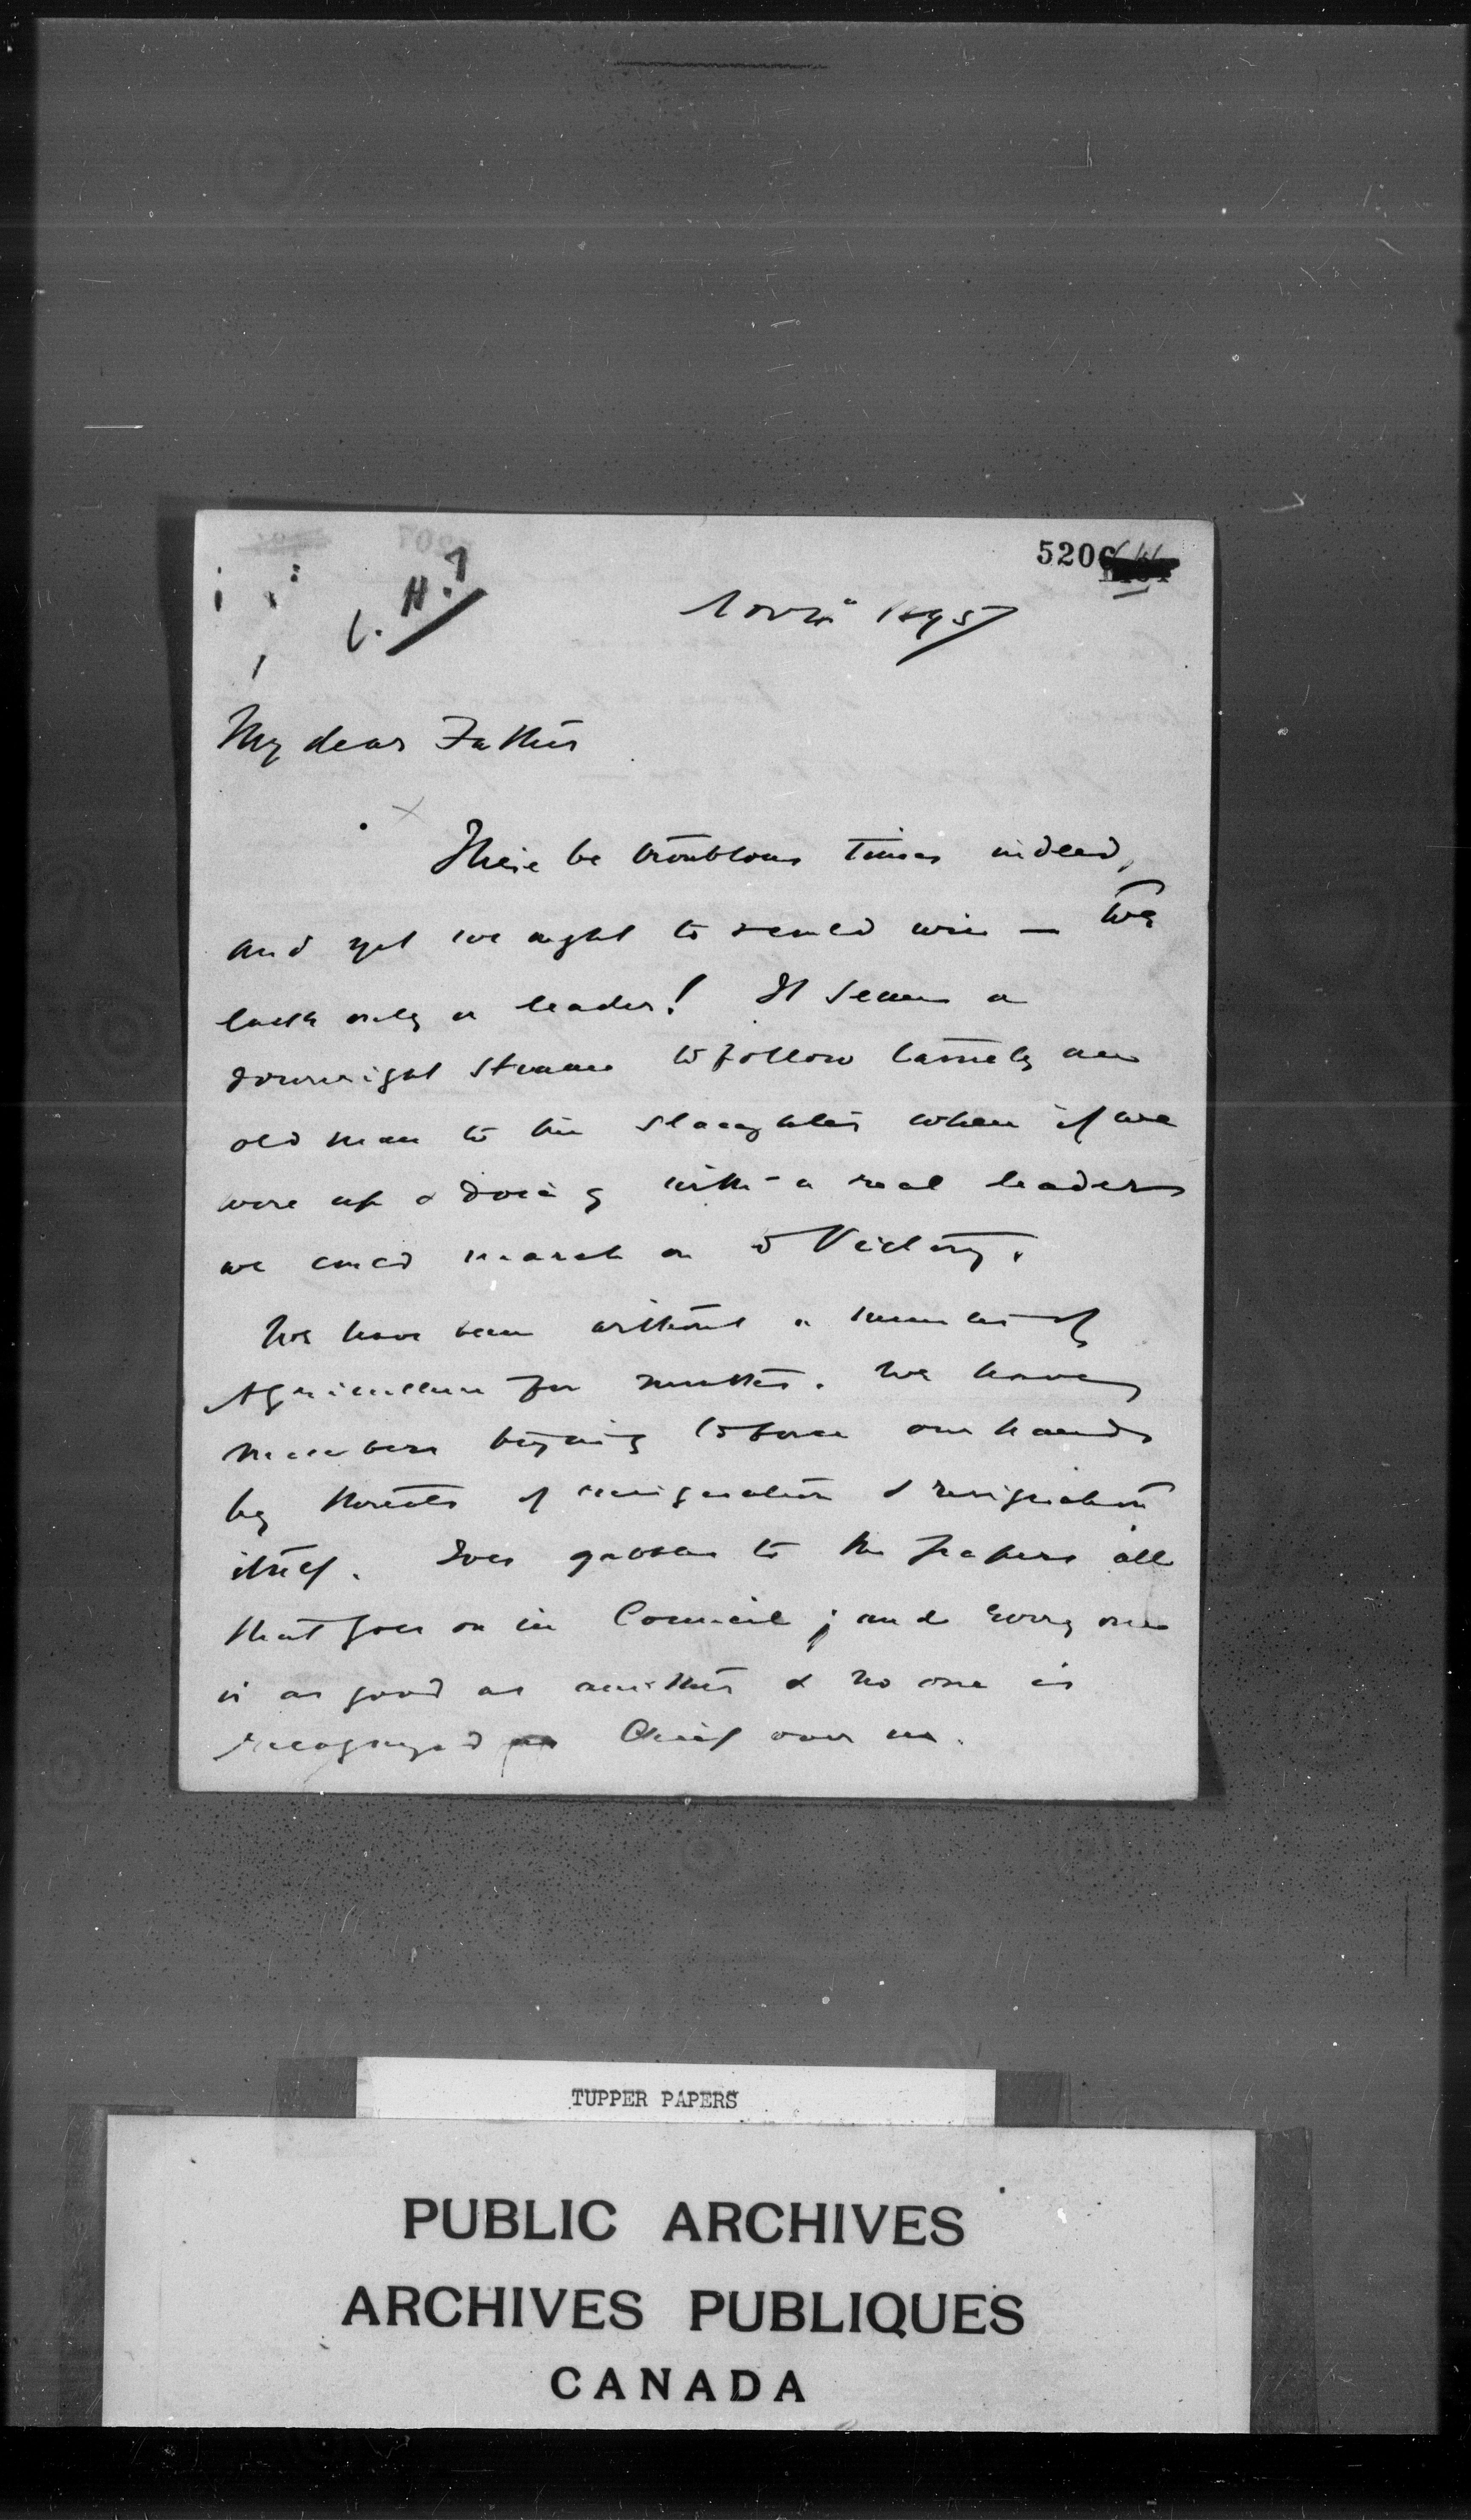 5206
C. H. T
1895
My dear Father
These be troublous times indeed,
and yet we ought to win — We
lack only a leader! It seems a
downright shame to follow tamely an
old man to the slaughter when if we
were up & doing with a real leader
we could march on to Victory.
We have been without a of
Agriculture for months. We have
members trying to force our hands
by threats of resignation & resignation
itself. Ives to the papers all
that goes on in Council; and every one
is as good as another & no one is
recognized as Chief over us.
TUPPER PAPERS
PUBLIC ARCHIVES
ARCHIVES PUBLIQUES
CANADA